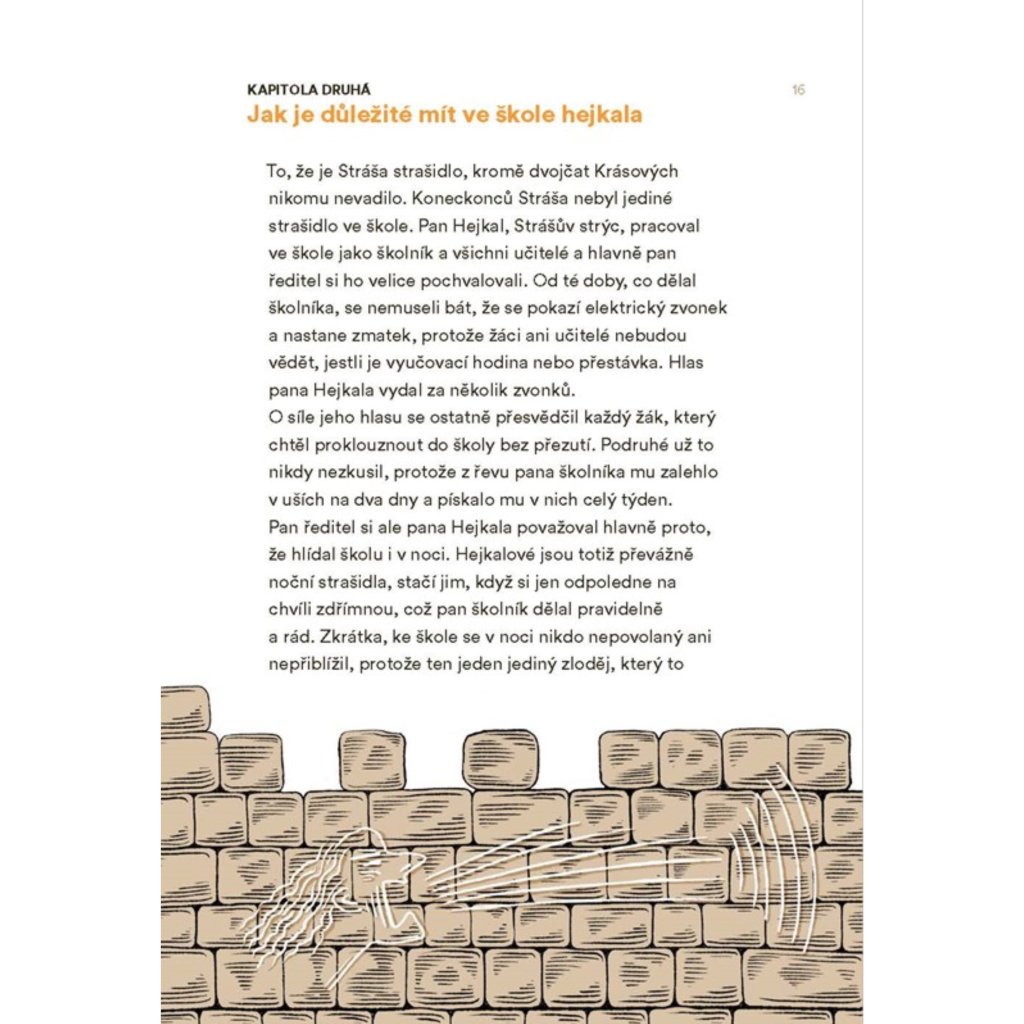 KAPITOLA DRUHÁ
16
Jak je důležité mít ve škole hejkala
To, že je Stráša strašidlo, kromě dvojčat Krásových
nikomu nevadilo. Koneckonců Stráša nebyl jediné
strašidlo ve škole. Pan Hejkal, Strášův strýc, pracoval
ve škole jako školník a všichni učitelé a hlavně pan
ředitel si ho velice pochvalovali. Od té doby, co dělal
školníka, se nemuseli bát, že se pokazí elektrický zvonek
a nastane zmatek, protože žáci ani učitelé nebudou
vědět, jestli je vyučovací hodina nebo přestávka. Hlas
pana Hejkala vydal za několik zvonků.
O síle jeho hlasu se ostatně přesvědčil každý žák, který
chtěl proklouznout do školy bez přezutí. Podruhé už to
nikdy nezkusil, protože z řevu pana školníka mu zalehlo
v uších na dva dny a pískalo mu v nich celý týden.
Pan ředitel si ale pana Hejkala považoval hlavně proto,
že hlídal školu i v noci. Hejkalové jsou totiž převážně
noční strašidla, stačí jim, když si jen odpoledne na
chvíli zdřímnou, což pan školník dělal pravidelně
a rád. Zkrátka, ke škole se v noci nikdo nepovolaný ani
nepřiblížil, protože ten jeden jediný zloděj, který to